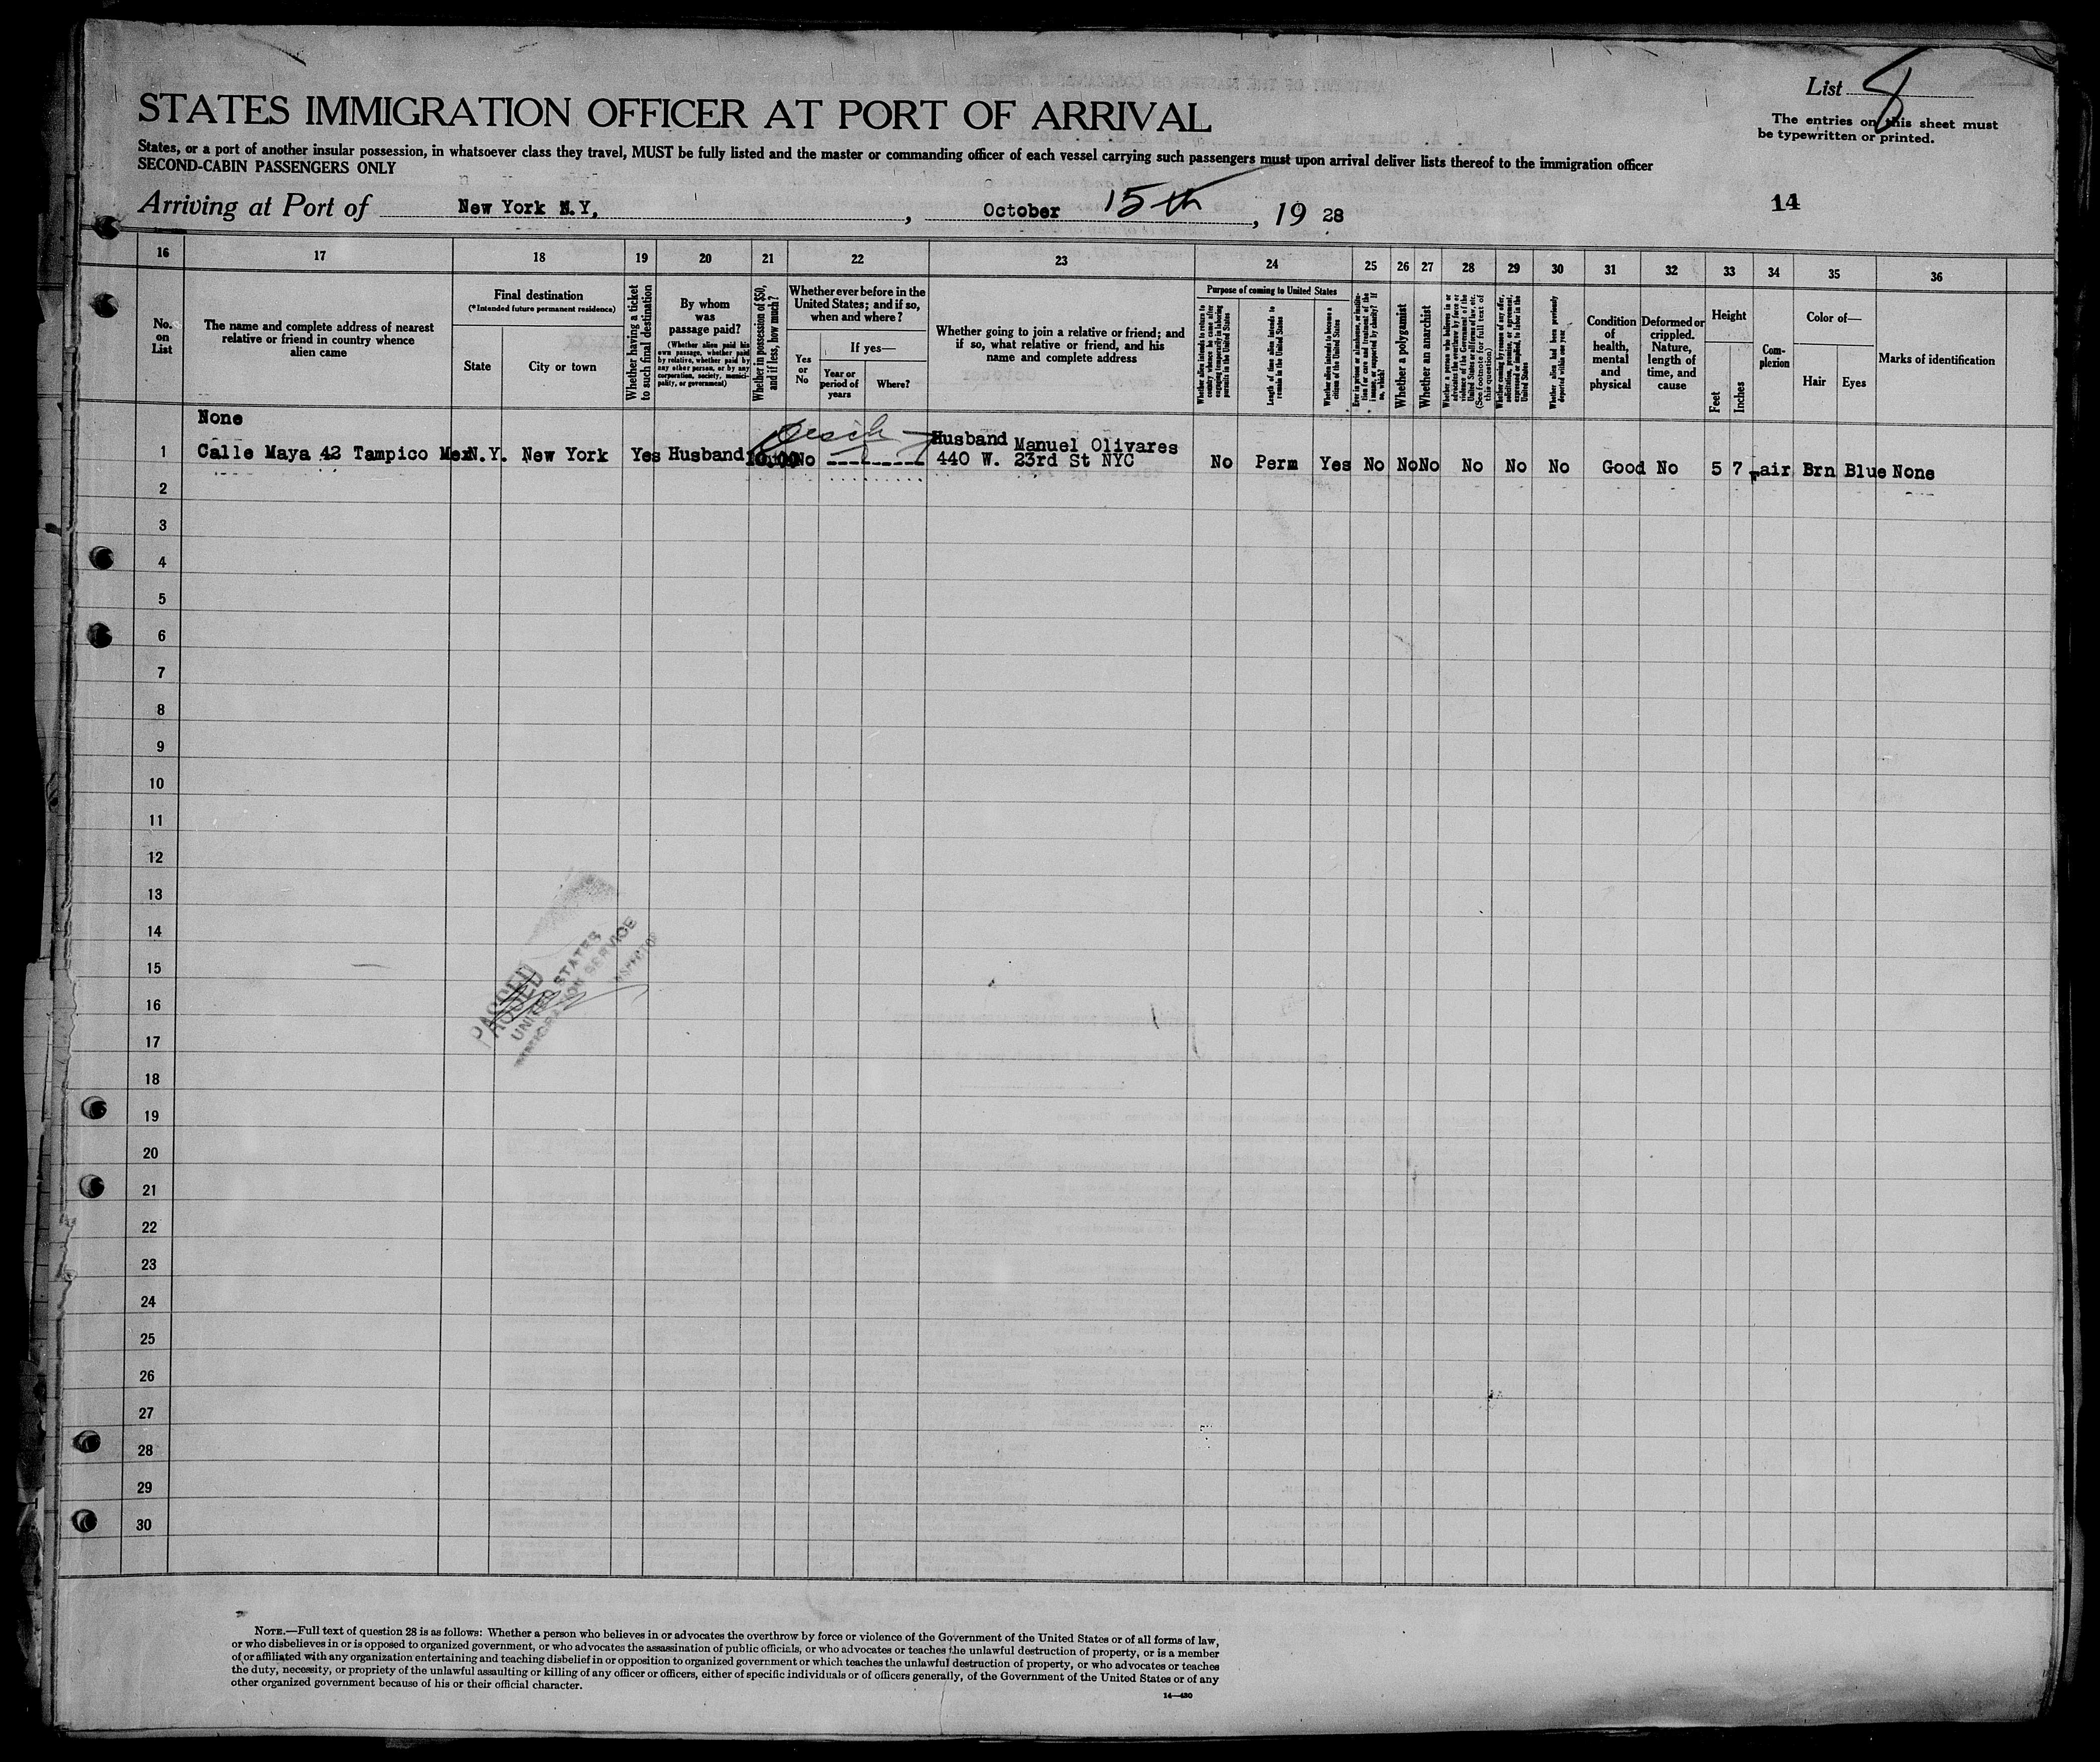 List 8
STATES IMMIGRATION OFFICER AT PORT OF ARRIVAL
The entries on this sheet must
be typewritten or printed.
States, or a port of another insular possession, in whatsoever class they travel, MUST be fully listed and the master or commanding officer of each vessel carrying such passengers must upon arrival deliver lists thereof to the immigration officer
SECOND-CABIN PASSENGERS ONLY
Arriving at Port of New York N.Y, , October 15th , 19 28
14
16 17 18 19 20 21 22 23 24 25 26 27 28 29 30 31 32 33 34 35 36
No.
on
List
The name and complete address of nearest
relative or friend in country whence
alien came
Final destination
(*Intended future permanent residence)
State
City or town
Whether having a ticket
to such final destination
By whom
was
passage paid?
(Whether alien paid his
own passage, whether paid
by relative, whether paid by
any other person, or by any
corporation, society, munici-
pality, or government)
Whether in possession of $50,
and if less, how much?
Whether ever before in the
United States; and if so,
when and where?
Yes
or
No
If yes—
Year or
period of
years
Where?
Whether going to join a relative or friend; and
if so, what relative or friend, and his
name and complete address
Purpose of coming to United States
Whether alien intends to return to
country whence he came after
engaging temporarily in laboring
pursuits in the United States
Length of time alien intends to
remain in the United States
Whether alien intends to become a
citizen of the United States
Ever in prison or almshouse, or institu-
tion for care and treatment of the
insane, or supported by charity? If
so, which?
Whether a polygamist
Whether an anarchist
Whether a person who believes in or
advocates the overthrow by force or
violence of the Government of the
United States or all forms of law, etc.
(See footnote for full text of
this question)
Whether coming by reason of any offer,
solicitation, promise, or agreement,
expressed or implied, to labor in the
United States
Whether alien had been previously
deported within one year
Condition
of
health,
mental
and
physical
Deformed or
crippled.
Nature,
length of
time, and
cause
Height
Feet
Inches
Com-
plexion
Color of—
Hair
Eyes
Marks of identification
None
1 Calle Maya 42 Tampico Mex N.Y. New York Yes Husband 10.00 No
Husband Manuel Olivares
440 W. 23rd St NYC No Perm Yes No No No No No No Good No 5 7 Fair Brn Blue None
2
3
4
5
6
7
8
9
10
11
12
13
14
15
16
17
18
19
20
21
22
23
24
25
26
27
28
29
30
PASSED
UNITED STATES
IMMIGRATION SERVICE
INSPECTOR
NOTE.—Full text of question 28 is as follows: Whether a person who believes in or advocates the overthrow by force or violence of the Government of the United States or of all forms of law,
or who disbelieves in or is opposed to organized government, or who advocates the assassination of public officials, or who advocates or teaches the unlawful destruction of property, or is a member
of or affiliated with any organization entertaining and teaching disbelief in or opposition to organized government or which teaches the unlawful destruction of property, or who advocates or teaches
the duty, necessity, or propriety of the unlawful assaulting or killing of any officer or officers, either of specific individuals or of officers generally, of the Government of the United States or of any
other organized government because of his or their official character.
14—430